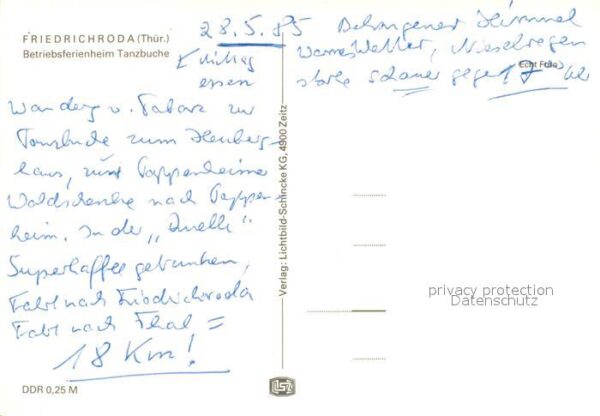 FRIEDRICHRODA (Thür.)
Betriebsferienheim Tanzbuche
28.5.85 Behangener Himmel
warmes Wetter, Nieselregen
starke Schauer gegen 17 Uhr
Echt Foto
Mittag
essen
Wanderg v. Tabarz zur
Tanzbuche zum Heuberg-
haus, zum Pappenheimer
Waldschenke nach Pappen
heim. In der „Quelle“
Superkaffee getrunken,
Fahrt nach Friedrichroda
Fahrt nach Thal =
18 Km!
DDR 0,25 M
Verlag: Lichtbild-Schincke KG, 4900 Zeitz
privacy protection
Datenschutz